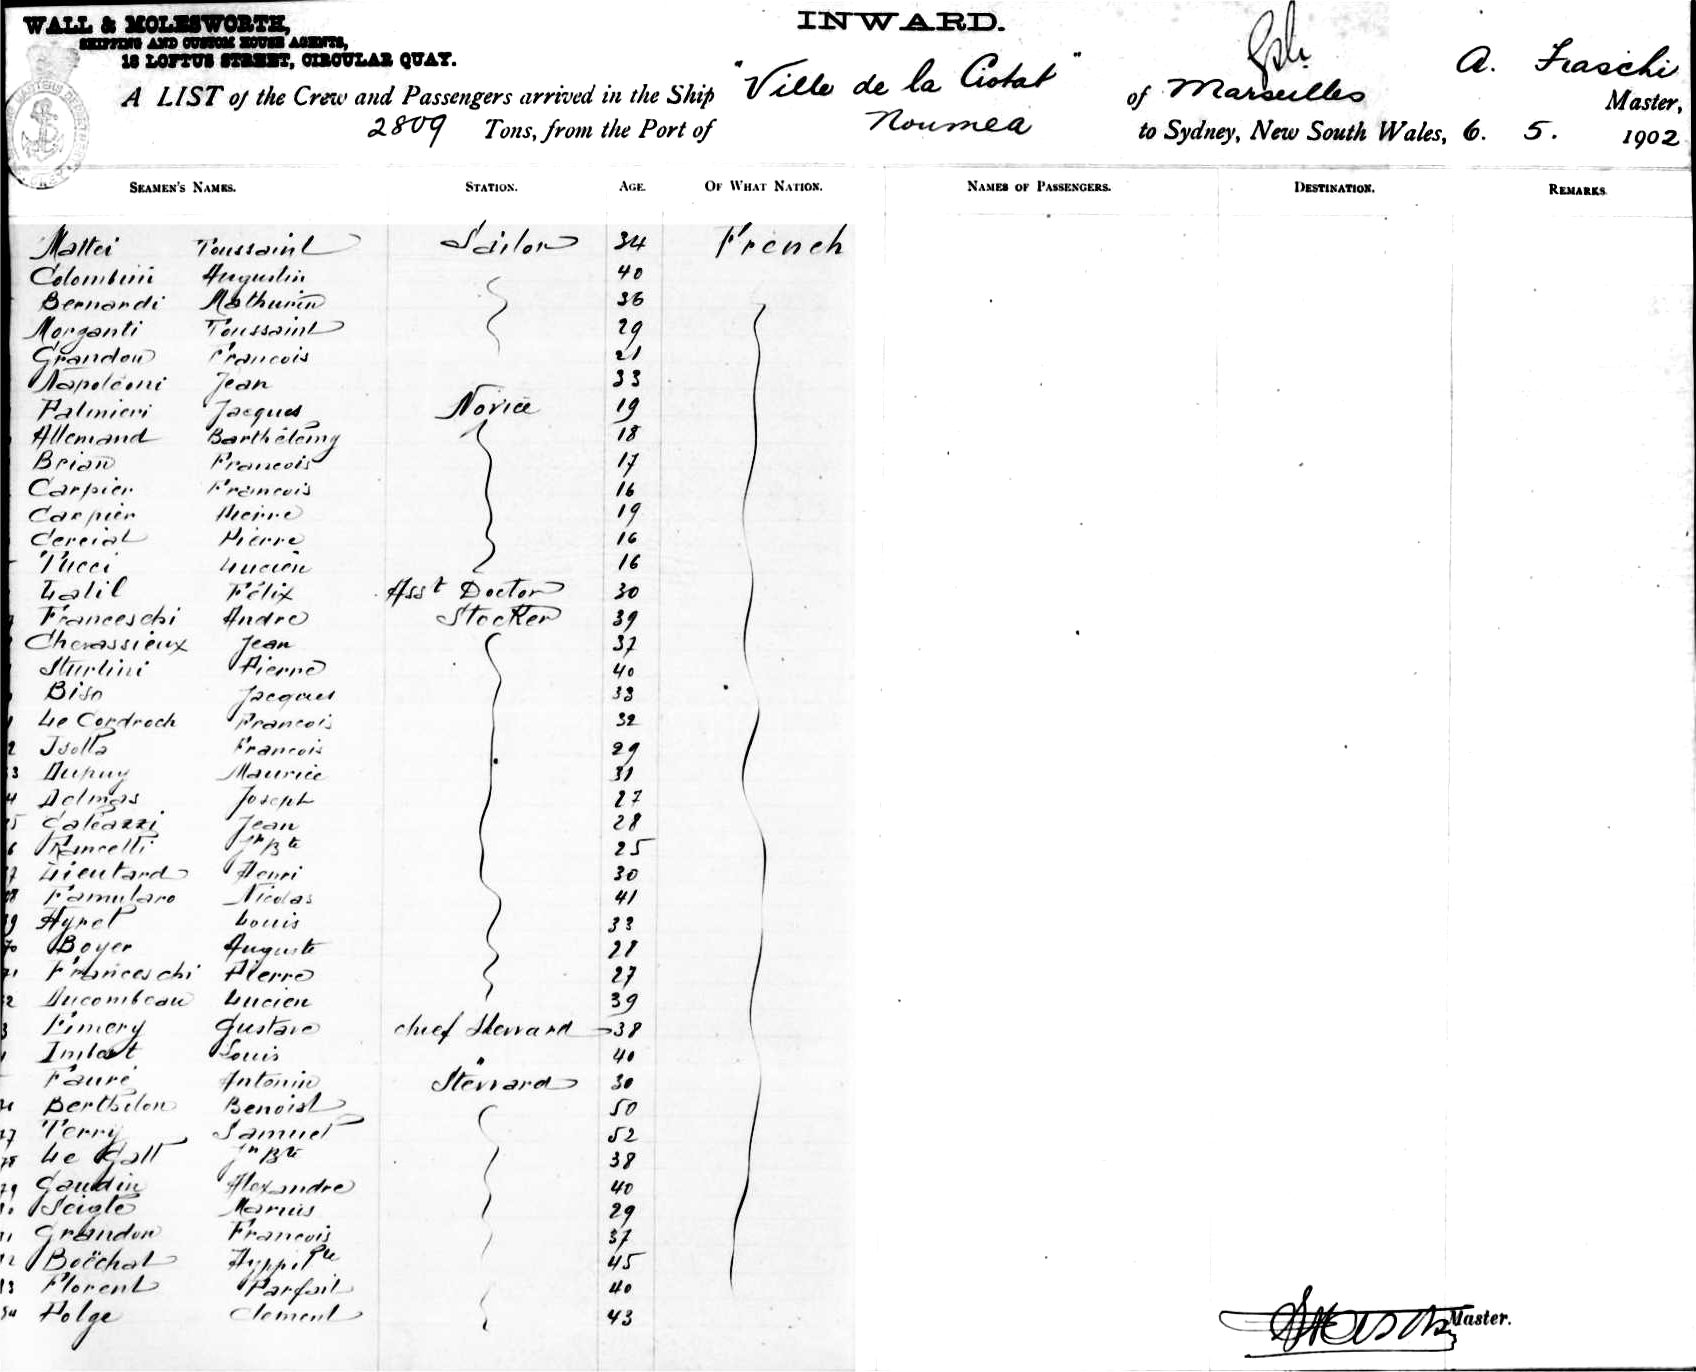 WALL & MOLESWORTH,
SHIPPING AND CUSTOM HOUSE AGENTS,
18 LOFTUS STREET, CIRCULAR QUAY.
INWARD.
A LIST of the Crew and Passengers arrived in the Ship "Ville de la Ciotat" of Marseilles A. Fraschi Master,
2809 Tons, from the Port of Noumea to Sydney, New South Wales, 6. 5. 1902
SEAMEN'S NAMES. STATION. AGE. OF WHAT NATION. NAMES OF PASSENGERS. DESTINATION. REMARKS.
Mattei Toussaint Sailor 34 French
Colombini Augustin 40
Bernardi Mathurin 36
Morganti Toussaint 29
Grandou Francois 21
Napoléoni Jean 33
Palmieri Jacques Novice 19
Allemand Barthélemy 18
Brian Francois 17
Carpier Francois 16
Carpier Pierre 19
Cercial Pierre 16
Tucci Lucien 16
Latil Félix Asst Doctor 30
Franceschi Andre Stocker 39
Chevassieux Jean 37
Sturlini Pierre 40
Biso Jacques 33
Le Cordroch Francois 32
2 Isolla Francois 29
3 Dupuy Maurice 31
4 Delmas Joseph 27
5 Galeazzi Jean 28
6 Rancelli Jn Bte 25
7 Lieutard Henri 30
8 Famularo Nicolas 41
9 Ayret Louis 33
70 Boyer Auguste 28
71 Franceschi Pierre 27
2 Ducombeau Lucien 39
3 Fimery Gustave chief Stewward 38
Imbert Louis " 40
Fauré Antonin Steward 30
76 Berthelon Benoist 50
77 Terry Samuel 52
78 Le Gall Jn Bte 38
79 Gaudin Alexandre 40
Seigle Marius 29
Grandou Francois 37
Boëchat Hyppolite 45
Florent Parfait 40
84 Polge Clement 43
Master.